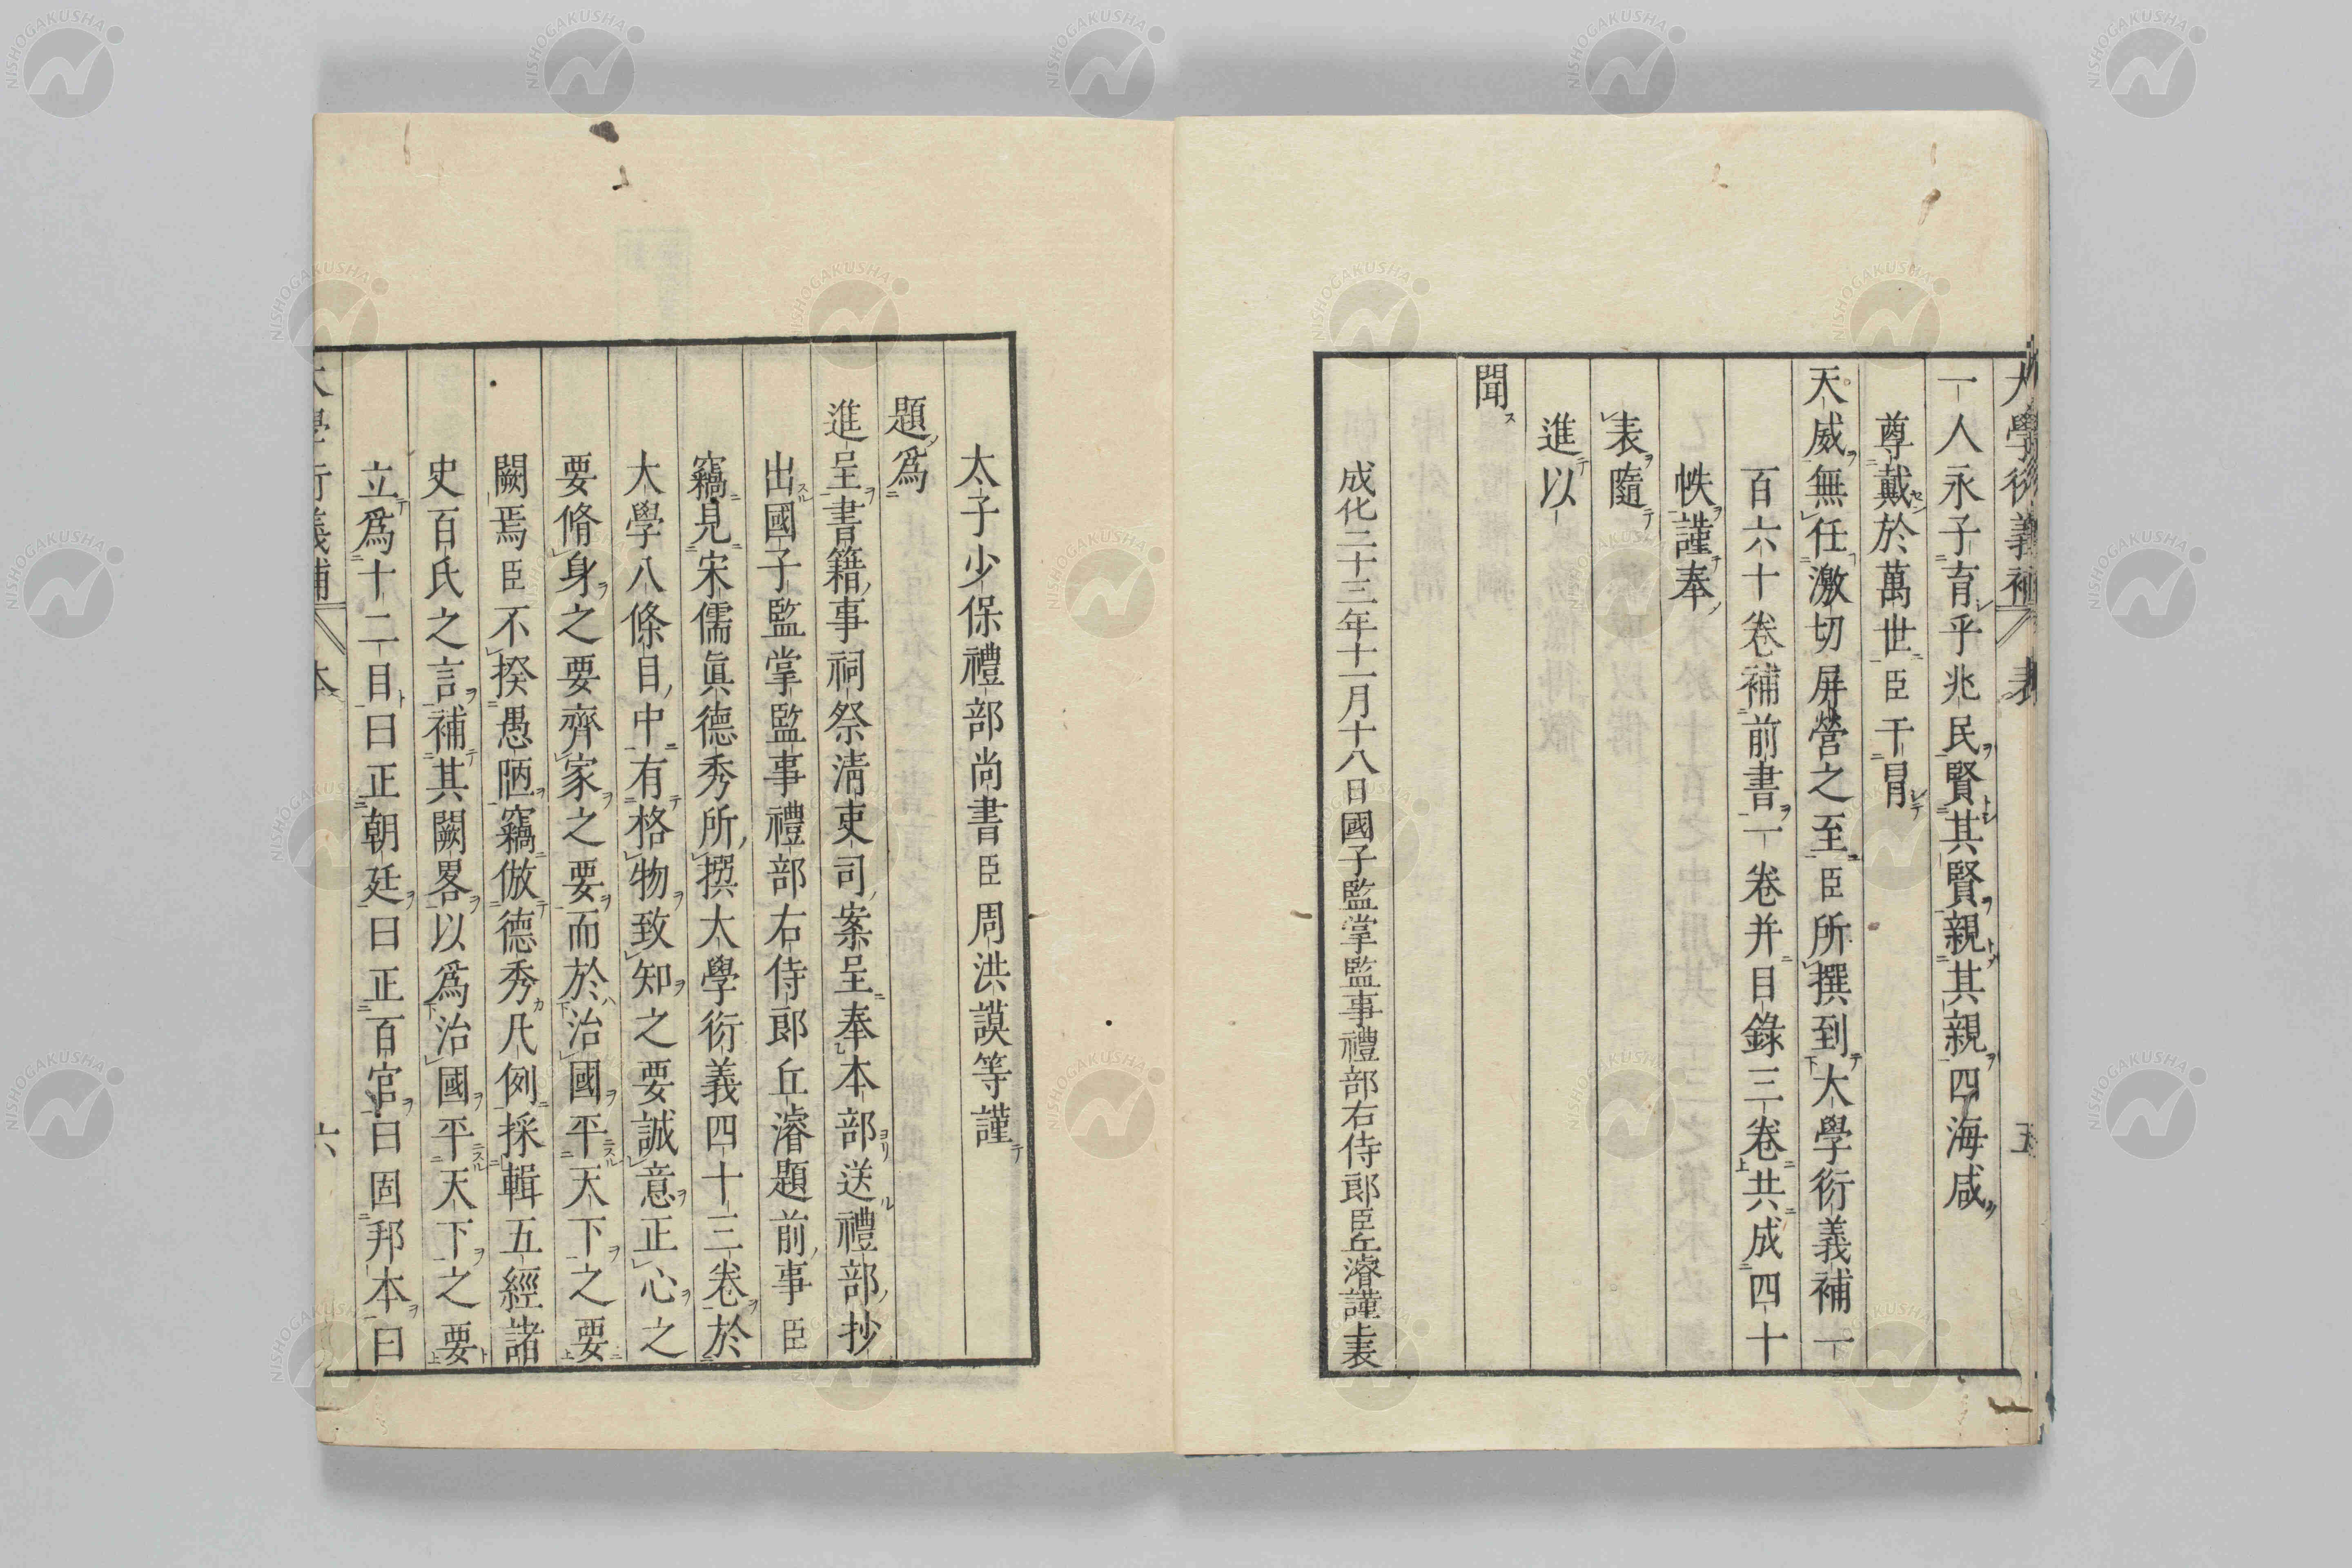 大學衍義補 表 五
一人永子育乎兆民賢其賢親其親四海咸
尊戴於萬世臣干冒
天威無任激切屏營之至臣所撰到大學衍義補一
百六十卷補前書一卷并目錄三卷共成四十
帙謹奉
表隨
進以
聞
成化二十三年十一月十八日國子監掌監事禮部右侍郎臣丘濬謹上表
太子少保禮部尚書臣周洪謨等謹
題爲
進呈書籍事祠祭淸吏司案呈奉本部送禮部抄
出國子監掌監事禮部右侍郎丘濬題前事臣
竊見宋儒眞德秀所撰大學衍義四十三卷於
大學八條目中有格物致知之要誠意正心之
要脩身之要齊家之要而於治國平天下之要
闕焉臣不揆愚陋竊倣德秀凡例採輯五經諸
史百氏之言補其闕畧以爲治國平天下之要
立爲十二目曰正朝廷曰正百官曰固邦本曰
大學衍義補 本 六
NISHOGAKUSHA